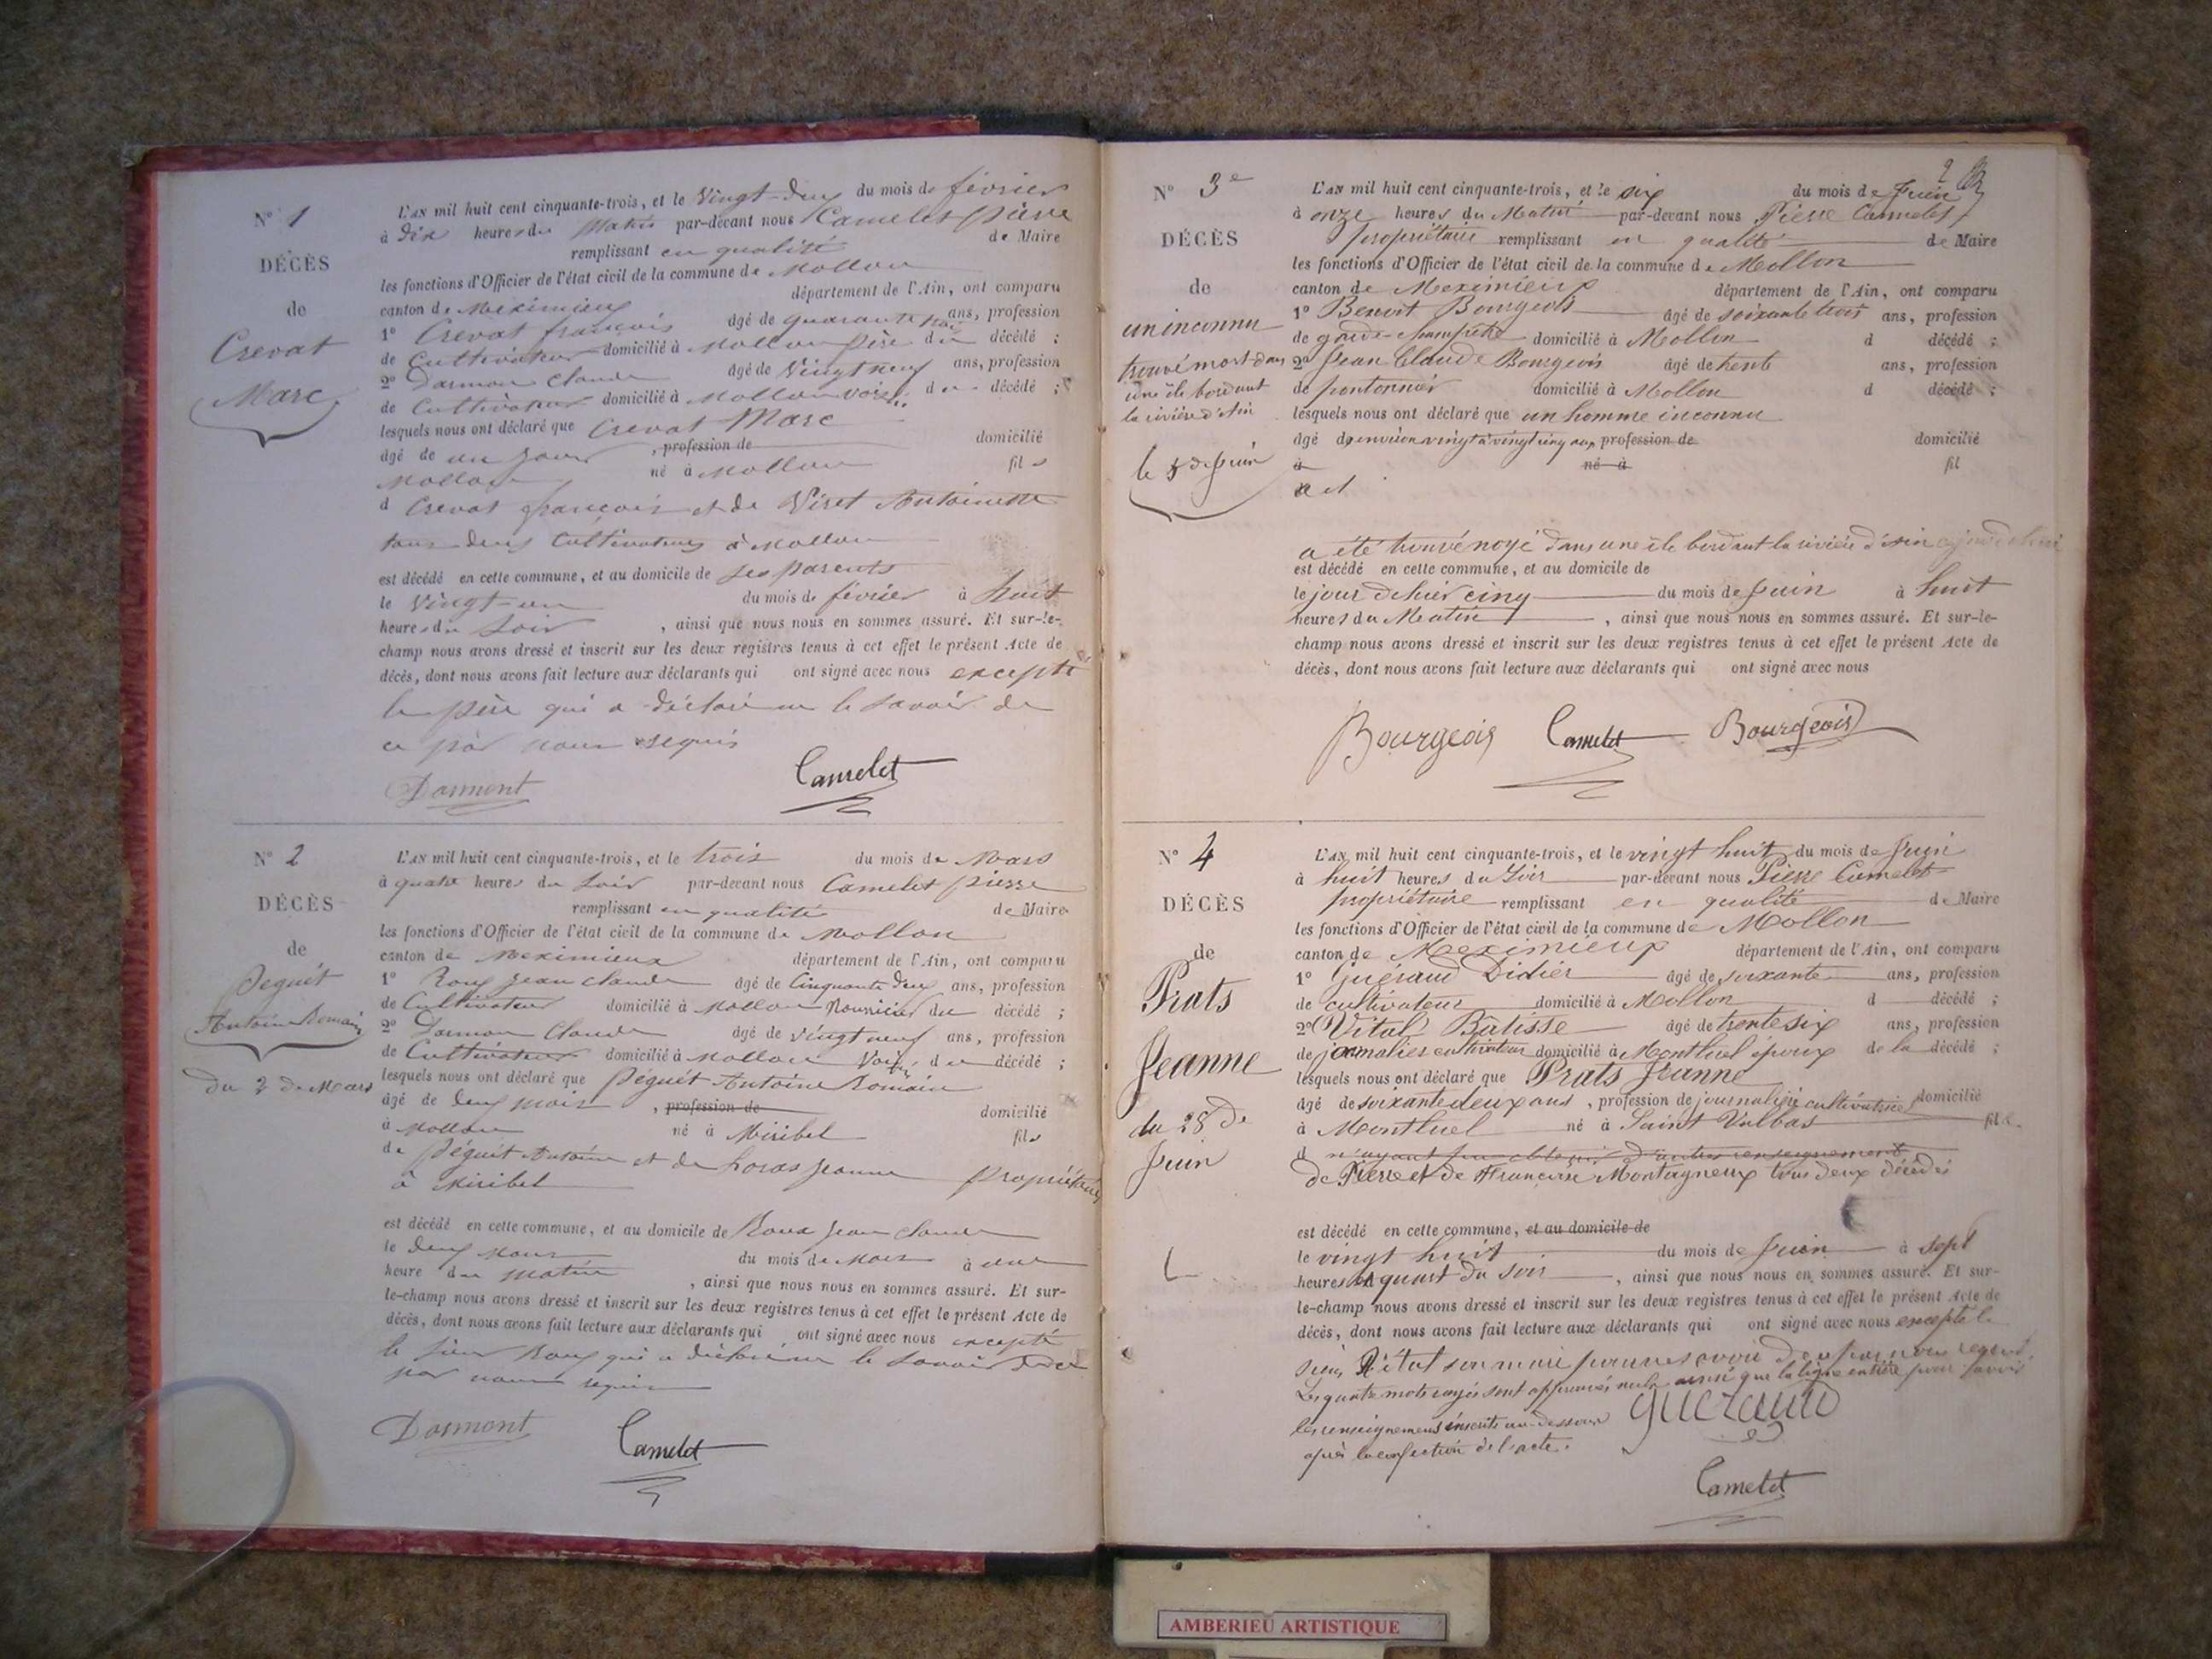 N° 1
DÉCÈS
de
Crevat
Marc
L'AN mil huit cent cinquante-trois, et le Vingt-deux du mois de février
à dix heures du Matin par-devant nous Camelet pierre
remplissant en qualité de Maire
les fonctions d'Officier de l'état civil de la commune de Mollon
canton de Meximieux département de l'Ain, ont comparu
1° Crevat françois âgé de quarante ans, profession
de Cultivateur domicilié à Mollon père du décédé ;
2° Darmon Claude âgé de Vingt neuf ans, profession
de Cultivateur domicilié à Mollon voisin du décédé ;
lesquels nous ont déclaré que Crevat Marc
âgé de un jour , profession de domicilié
Mollon né à Mollon fils
d Crevat françois et de Viret Antoinette
tous deux Cultivateurs à Mollon
est décédé en cette commune, et au domicile de ses parents
le Vingt-un du mois de février à huit
heures du Soir , ainsi que nous nous en sommes assuré. Et sur-le-
champ nous avons dressé et inscrit sur les deux registres tenus à cet effet le présent Acte de
décès, dont nous avons fait lecture aux déclarants qui ont signé avec nous excepté
le père qui a déclaré ne le savoir de
ce par nous requis
Darmont Camelet
N° 2
DÉCÈS
de
Peguét
Antoine Romain
du 2 de Mars
L'AN mil huit cent cinquante-trois, et le trois du mois de Mars
à quatre heures du Soir par-devant nous Camelet pierre
remplissant en qualité de Maire
les fonctions d'Officier de l'état civil de la commune de Mollon
canton de Meximieux département de l'Ain, ont comparu
1° Roux Jean claude âgé de Cinquante deux ans, profession
de Cultivateur domicilié à Mollon Nourricier du décédé ;
2° Darmon Claude âgé de vingt neuf ans, profession
de Cultivateur domicilié à Mollon Voisin du décédé ;
lesquels nous ont déclaré que Péguét Antoine Romain
âgé de deux mois , profession de domicilié
à Mollon né à Miribel fils
de Péguét Antoine et de Jeanne propriétaires
à Miribel
est décédé en cette commune, et au domicile de Roux Jean claude
le deux Mars du mois de Mars à une
heure du matin , ainsi que nous nous en sommes assuré. Et sur-
le-champ nous avons dressé et inscrit sur les deux registres tenus à cet effet le présent Acte de
décès, dont nous avons fait lecture aux déclarants qui ont signé avec nous excepté
le sieur Roux qui a déclaré ne le savoir de ce
par nous requis
Darmont Camelet
2
N° 3e
DÉCÈS
de
un inconnu
trouvé mort dans
une île bordant
la rivière d'Ain
le 5 de Juin
L'AN mil huit cent cinquante-trois, et le six du mois de Juin
à onze heures du Matin par-devant nous Pierre Camelet
propriétaire remplissant en qualité de Maire
les fonctions d'Officier de l'état civil de la commune de Mollon
canton de Meximieux département de l'Ain, ont comparu
1° Benoit Bourgeois âgé de soixante trois ans, profession
de garde champêtre domicilié à Mollon d décédé ;
2° Jean Claude Bourgeois âgé de trente ans, profession
de pontonnier domicilié à Mollon d décédé ;
lesquels nous ont déclaré que un homme inconnu
âgé d'environ vingt à vingt cinq ans profession de domicilié
à né à fil
a été trouvé noyé dans une île bordant la rivière d'Ain
est décédé en cette commune, et au domicile de
le jour d'hier cinq du mois de Juin à huit
heures du Matin , ainsi que nous nous en sommes assuré. Et sur-le-
champ nous avons dressé et inscrit sur les deux registres tenus à cet effet le présent Acte de
décès, dont nous avons fait lecture aux déclarants qui ont signé avec nous
Bourgeois Camelet Bourgeois
N° 4
DÉCÈS
de
Prats
Jeanne
du 28 de
Juin
L'AN mil huit cent cinquante-trois, et le vingt huit du mois de Juin
à huit heures du Soir par-devant nous Pierre Camelet
propriétaire remplissant en qualité de Maire
les fonctions d'Officier de l'état civil de la commune de Mollon
canton de Meximieux département de l'Ain, ont comparu
1° Guéraud Didier âgé de soixante ans, profession
de cultivateur domicilié à Mollon d décédé ;
2° Vital Batisse âgé de trente six ans, profession
de journalier cultivateur domicilié à Montluel époux de la décédé ;
lesquels nous ont déclaré que Prats Jeanne
âgé de soixante deux ans , profession de journalière cultivatrice domicilié
à Montluel né à Saint Vulbas fil
d n'ayant pu obtenir d'autres renseignements
de Pierre et de Françoise Montagneux tous deux décédés
est décédé en cette commune, et au domicile de
le vingt huit du mois de Juin à sept
heures un quart du soir , ainsi que nous nous en sommes assuré. Et sur-
le-champ nous avons dressé et inscrit sur les deux registres tenus à cet effet le présent Acte de
décès, dont nous avons fait lecture aux déclarants qui ont signé avec nous excepté le
sieur Vital son mari par nous requis.
Les quatre mots rayés sont approuvés nuls ainsi que la ligne entière pour
les renseignemens inscrits au-dessous Gueraud
après la confection de l'acte.
Camelet
AMBERIEU ARTISTIQUE